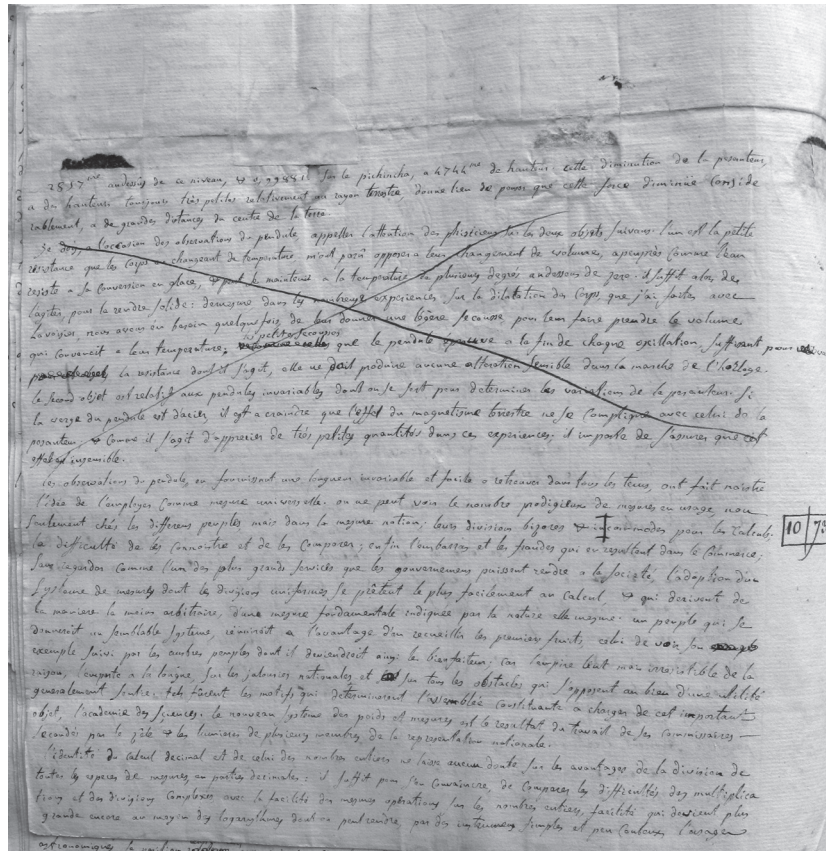 2857 me audessus de ce niveau, et 0,99881 sur le pichincha, a 4744 me de hauteur. cette diminution de la pesanteur,
a des hauteurs toujours très petites relativement au rayon terrestre, donne lieu de penser que cette force diminue conside
rablement, a de grandes distances du centre de la terre.
Je dois, a l'occasion des observations du pendule, appeller l'attention des phisiciens sur les deux objets suivans. l'un est la petite
resistance que les corps en changeant de temperature opposer a leur changement de volumes, apeuprès comme l'eau
resiste a sa conversion en glace, et peut se maintenir a la temperature de plusieurs degrés audessous de zero. il suffit alors de
l'agiter, pour la rendre solide: demesme dans les nombreuses experiences sur la dilatation des corps, que j'ai faites avec
Lavoisier, nous avons eu besoin quelquefois, de leur donner une légère secousse pour leur faire prendre le volume
les petites secousses
qui convenoit a leur temperature; que le pendule eprouve a la fin de chaque oscillation, suffisant pour
la resistance dont il s'agit, elle ne doit produire aucune alteration sensible dans la marche de l'horloge.
le second objet est relatif aux pendules invariables dont on se sert pour determiner les variations de la pesanteur. Si
la verge du pendule est d'acier, il est a craindre que l'effet du magnetisme terrestre ne se complique avec celui de la
pesanteur, et comme il s'agit d'apprecier de très petites quantités dans ces experiences; il importe de s'assurer que cet
effet est insensible.
Les observations du pendule, en fournissant une longueur invariable et facile a retrouver dans tous les tems, ont fait naitre
l'idée de l'employer comme mesure universelle. on ne peut voir le nombre prodigieux de mesures en usage, non
seulement chés les differens peuples mais dans la mesme nation; leurs divisions bizares et incommodes pour les calculs;
la difficulté de les connoitre et de les comparer; enfin l'embarras et les fraudes qui en resultent dans le commerce;
sans regarder comme l'un des plus grands services que les gouvernemens puissent rendre a la societé, l'adoption d'un
Systeme de mesures dont les divisions uniformes se prêtent le plus facilement au calcul et qui derivent de
la maniere la moins arbitraire, d'une mesure fondamentale indiquée par la nature elle mesme. un peuple qui se
donneroit un semblable systeme, réuniroit a l'avantage d'en recueillir les premiers fruits, celui de voir son
exemple suivi par les autres peuples dont il deviendroit ainsi le bienfaiteur; car l'empire lent mais irresistible de la
raison, l'emporte a la longue, sur les jalousies nationales et sur tous les obstacles qui s'opposent au bien d'une utilité
generalement sentie. tels furent les motifs qui determinerent l'assemblée constituante a charger de cet important
objet, l'academie des sciences. le nouveau systeme des poids et mesures est le resultat du travail de ses commissaires
secondés par le zèle et les lumieres de plusieurs membres de la representation nationale.
l'identité du calcul decimal et de celui des nombres entiers ne laisse aucun doute sur les avantages de la division de
toutes les especes de mesures en parties decimales: il suffit pour s'en convaincre, de comparer les difficultés des multiplica
tions et des divisions complexes avec la facilité des mesmes operations sur les nombres entiers, facilité qui devient plus
grande encore au moyen des logarythmes dont on peut rendre, par des instrumens simples et peu couteux l'usage
10 73